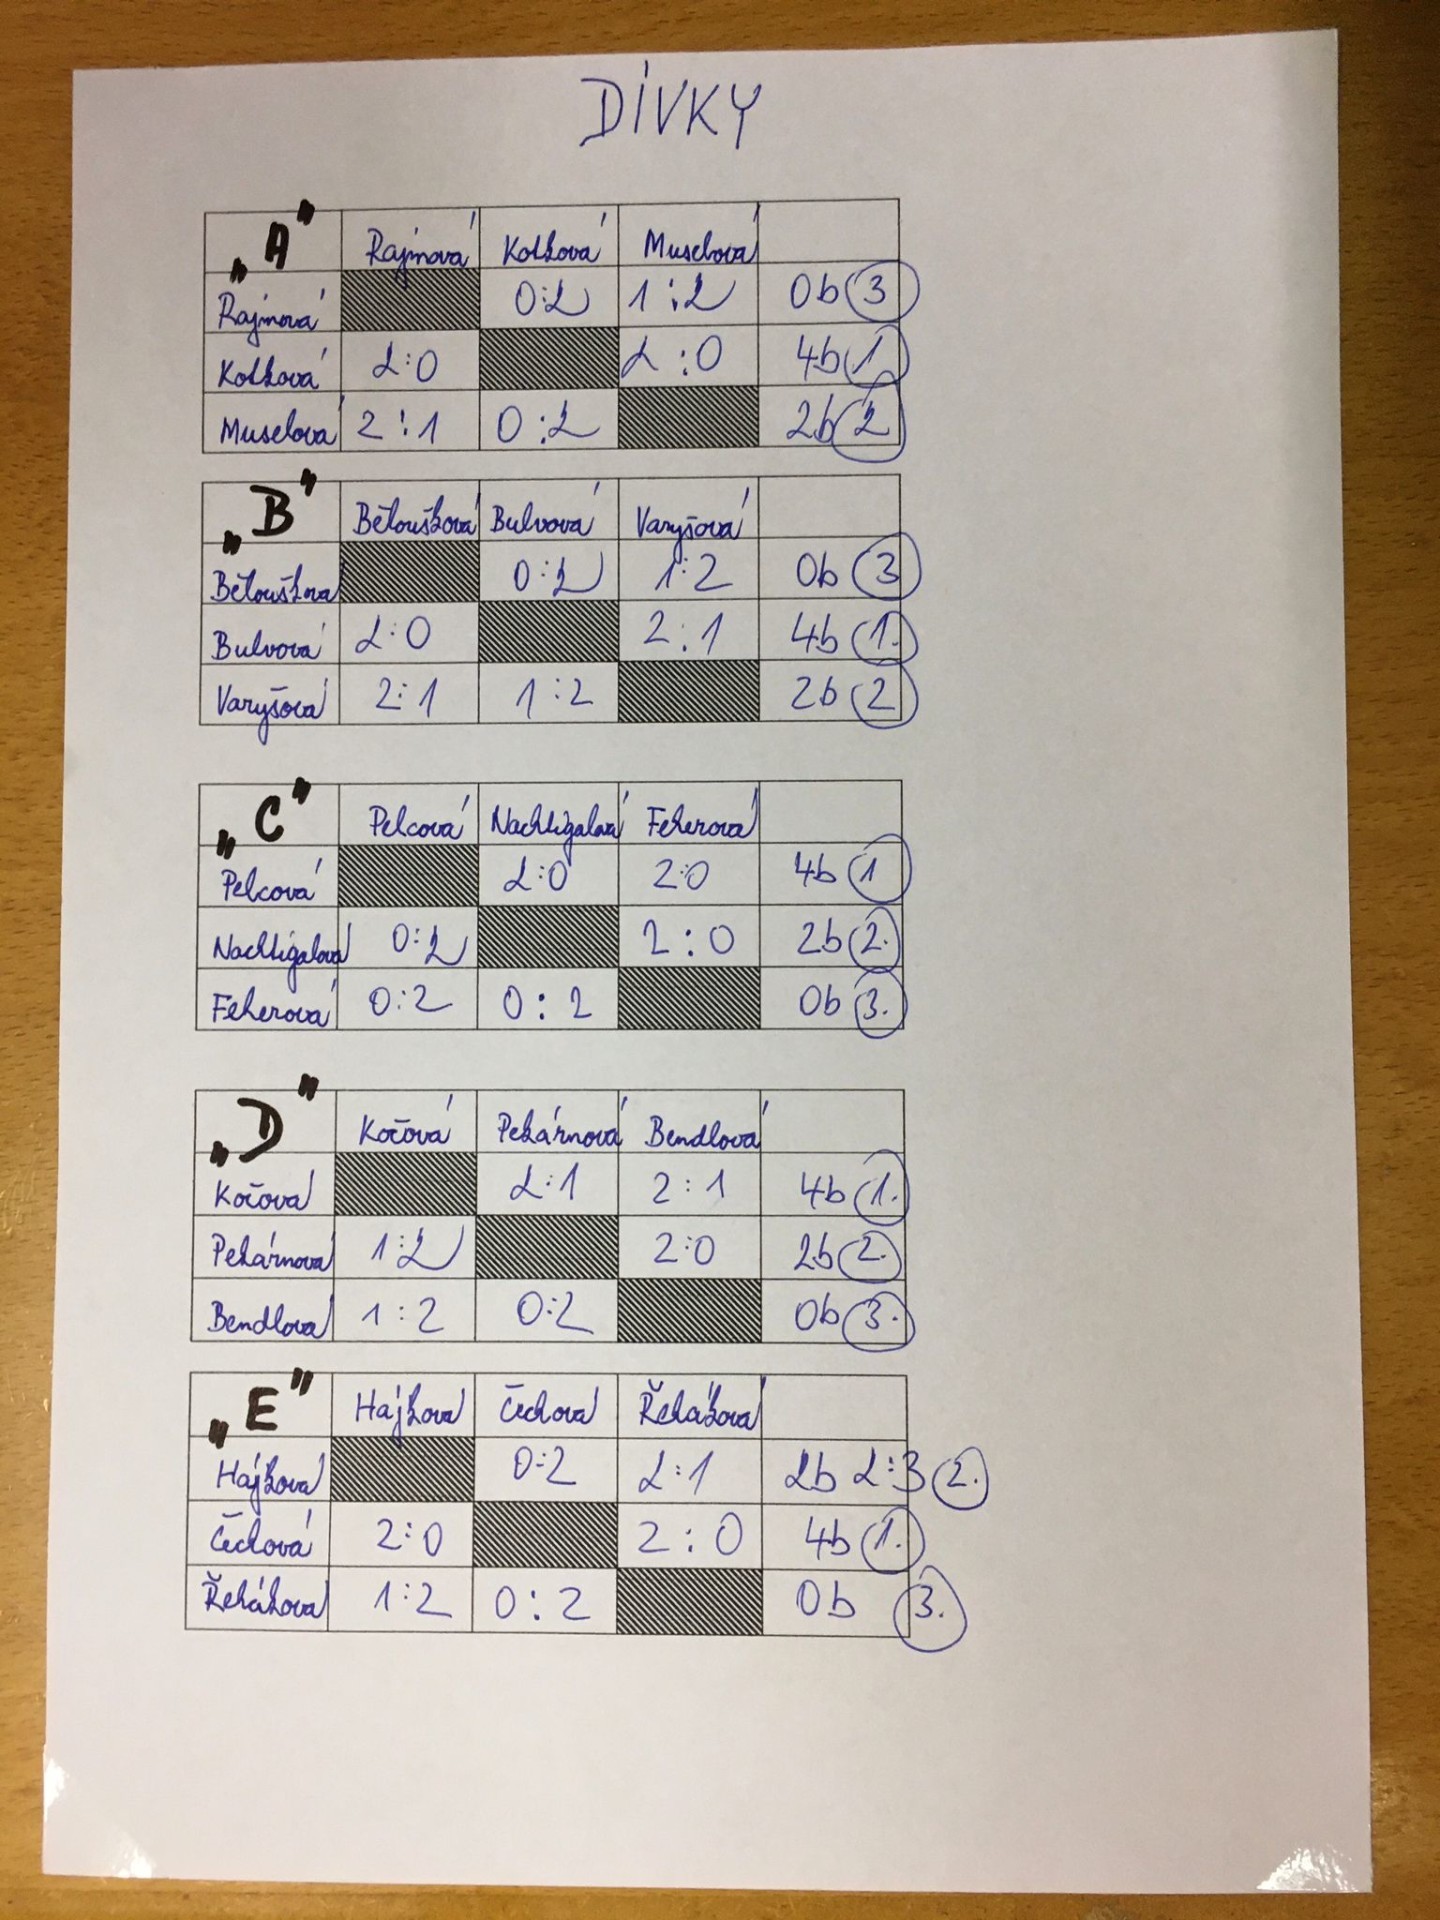 DÍVKY
„A" Rajmová Kolková Muselová
Rajmová 0:2 1:2 0b 3
Kolková 2:0 2:0 4b 1
Muselová 2:1 0:2 2b 2
„B" Běloušková Bulvová Varyšová
Běloušková 0:2 1:2 0b 3
Bulvová 2:0 2:1 4b 1.
Varyšová 2:1 1:2 2b 2
„C" Pelcová Nachtigalová Feherová
Pelcová 2:0 2:0 4b 1
Nachtigalová 0:2 2:0 2b 2.
Feherová 0:2 0:2 0b 3.
„D" Kočová Pekárnová Bendlová
Kočová 2:1 2:1 4b 1.
Pekárnová 1:2 2:0 2b 2.
Bendlová 1:2 0:2 0b 3.
„E" Hájková Čechová Řeháková
Hájková 0:2 2:1 2b 2:3 2.
Čechová 2:0 2:0 4b 1.
Řeháková 1:2 0:2 0b 3.